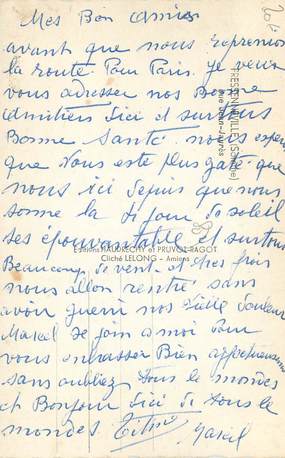 Mes Bon Amies
avant que nous reprenions
la route. Pour Paris. je veux
vous adresser nos Bonne
Amitiers d'ici et surtous
Bonne Santé. nous esperon
que Vous este plus gaté que
nous ici depuis que nous
somme la di jour de soleil
ses épouvantable et surtous
Beaucoup de vent. et tres froi
nous allon rentré sans
avoir guerri nos Vielle douleur
Marcel se join a moi Pour
vous enrasser Bien
sans oubliez tous le mondes
et Bonjour d'ici de tous le
mondes
FRESSENNEVILLE (Somme)
Rue Jean-Jaurès
Editions HAUDRECHY et PRUVOT-RAGOT
Cliché LELONG - Amiens